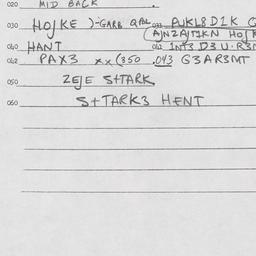 020 MID BACK
030 HOJKE )-GARB QAL 033 PUKL8 D1K
(AJNZAJTIKN HOJK
040 HANT 041 INT3 D3 U.R3
042 PAX3 xx(350 .043 G3AR3MT
050 ZEJE S+TARK
060 S+TARK3 HENT